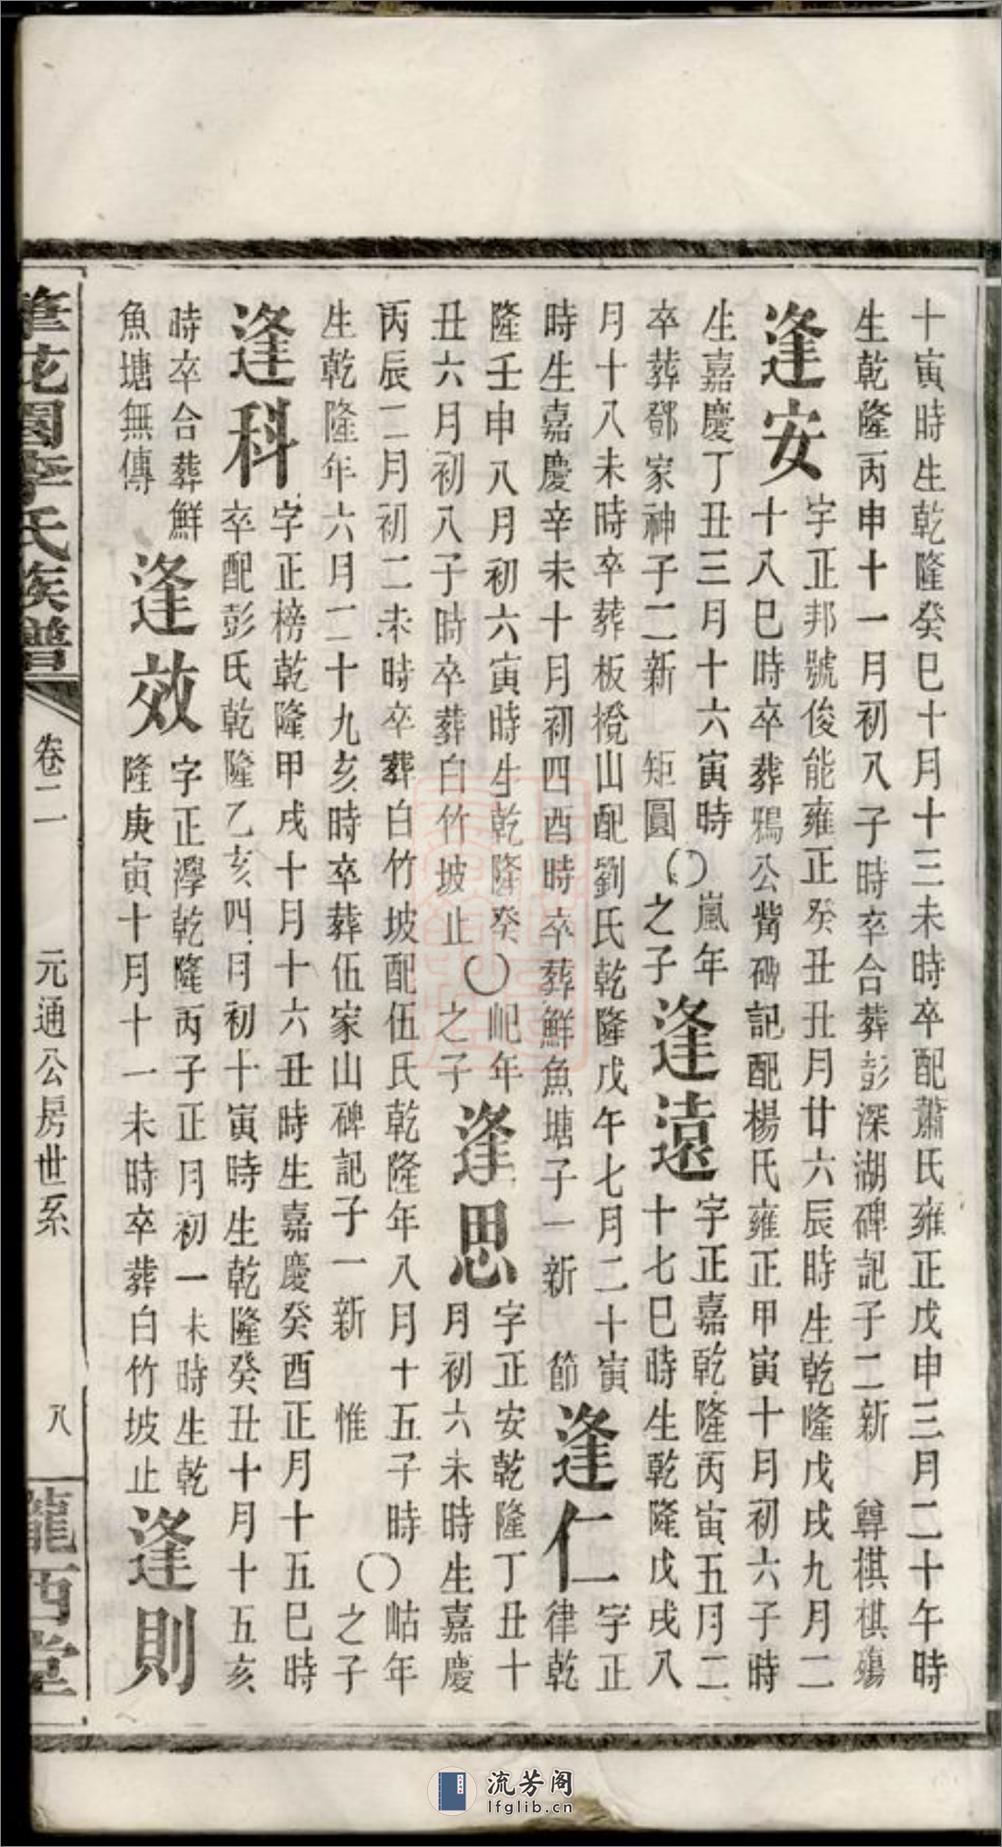 十寅時生乾隆癸巳十月十三未時卒配蕭氏雍正戊申三月二十午時
生乾隆丙申十一月初八子時卒合葬彭深湖碑記子二新 尊棋棋殤
逢安 字正邦號俊能雍正癸丑丑月廿六辰時生乾隆戊戌九月二
十八巳時卒葬鴉公觜碑記配楊氏雍正甲寅十月初六子時
生嘉慶丁丑三月十六寅時〇嵐年
卒葬鄧家神子二新 矩圓 之子
逢遠 字正嘉乾隆丙寅五月二
十七巳時生乾隆戊戌八
月十八未時卒葬板櫈山配劉氏乾隆戊午七月二十寅
時生嘉慶辛未十月初四酉時卒葬鮮魚塘子一新 節
逢仁 字正
律乾
隆壬申八月初六寅時生乾隆癸〇屺年
丑六月初八子時卒葬白竹坡止 之子
逢思 字正安乾隆丁丑十
月初六未時生嘉慶
丙辰二月初二未時卒葬白竹坡配伍氏乾隆年八月十五子時〇岵年
生乾隆年六月二十九亥時卒葬伍家山碑記子一新 惟 之子
逢科 字正榜乾隆甲戌十月十六丑時生嘉慶癸酉正月十五巳時
卒配彭氏乾隆乙亥四月初十寅時生乾隆癸丑十月十五亥
時卒合葬鮮
魚塘無傳
逢效 字正澤乾隆丙子正月初一未時生乾
隆庚寅十月十一未時卒葬白竹坡止
逢則
李氏族譜
卷二
元通公房世系
八
隴西堂
流芳阁
lfglib.cn